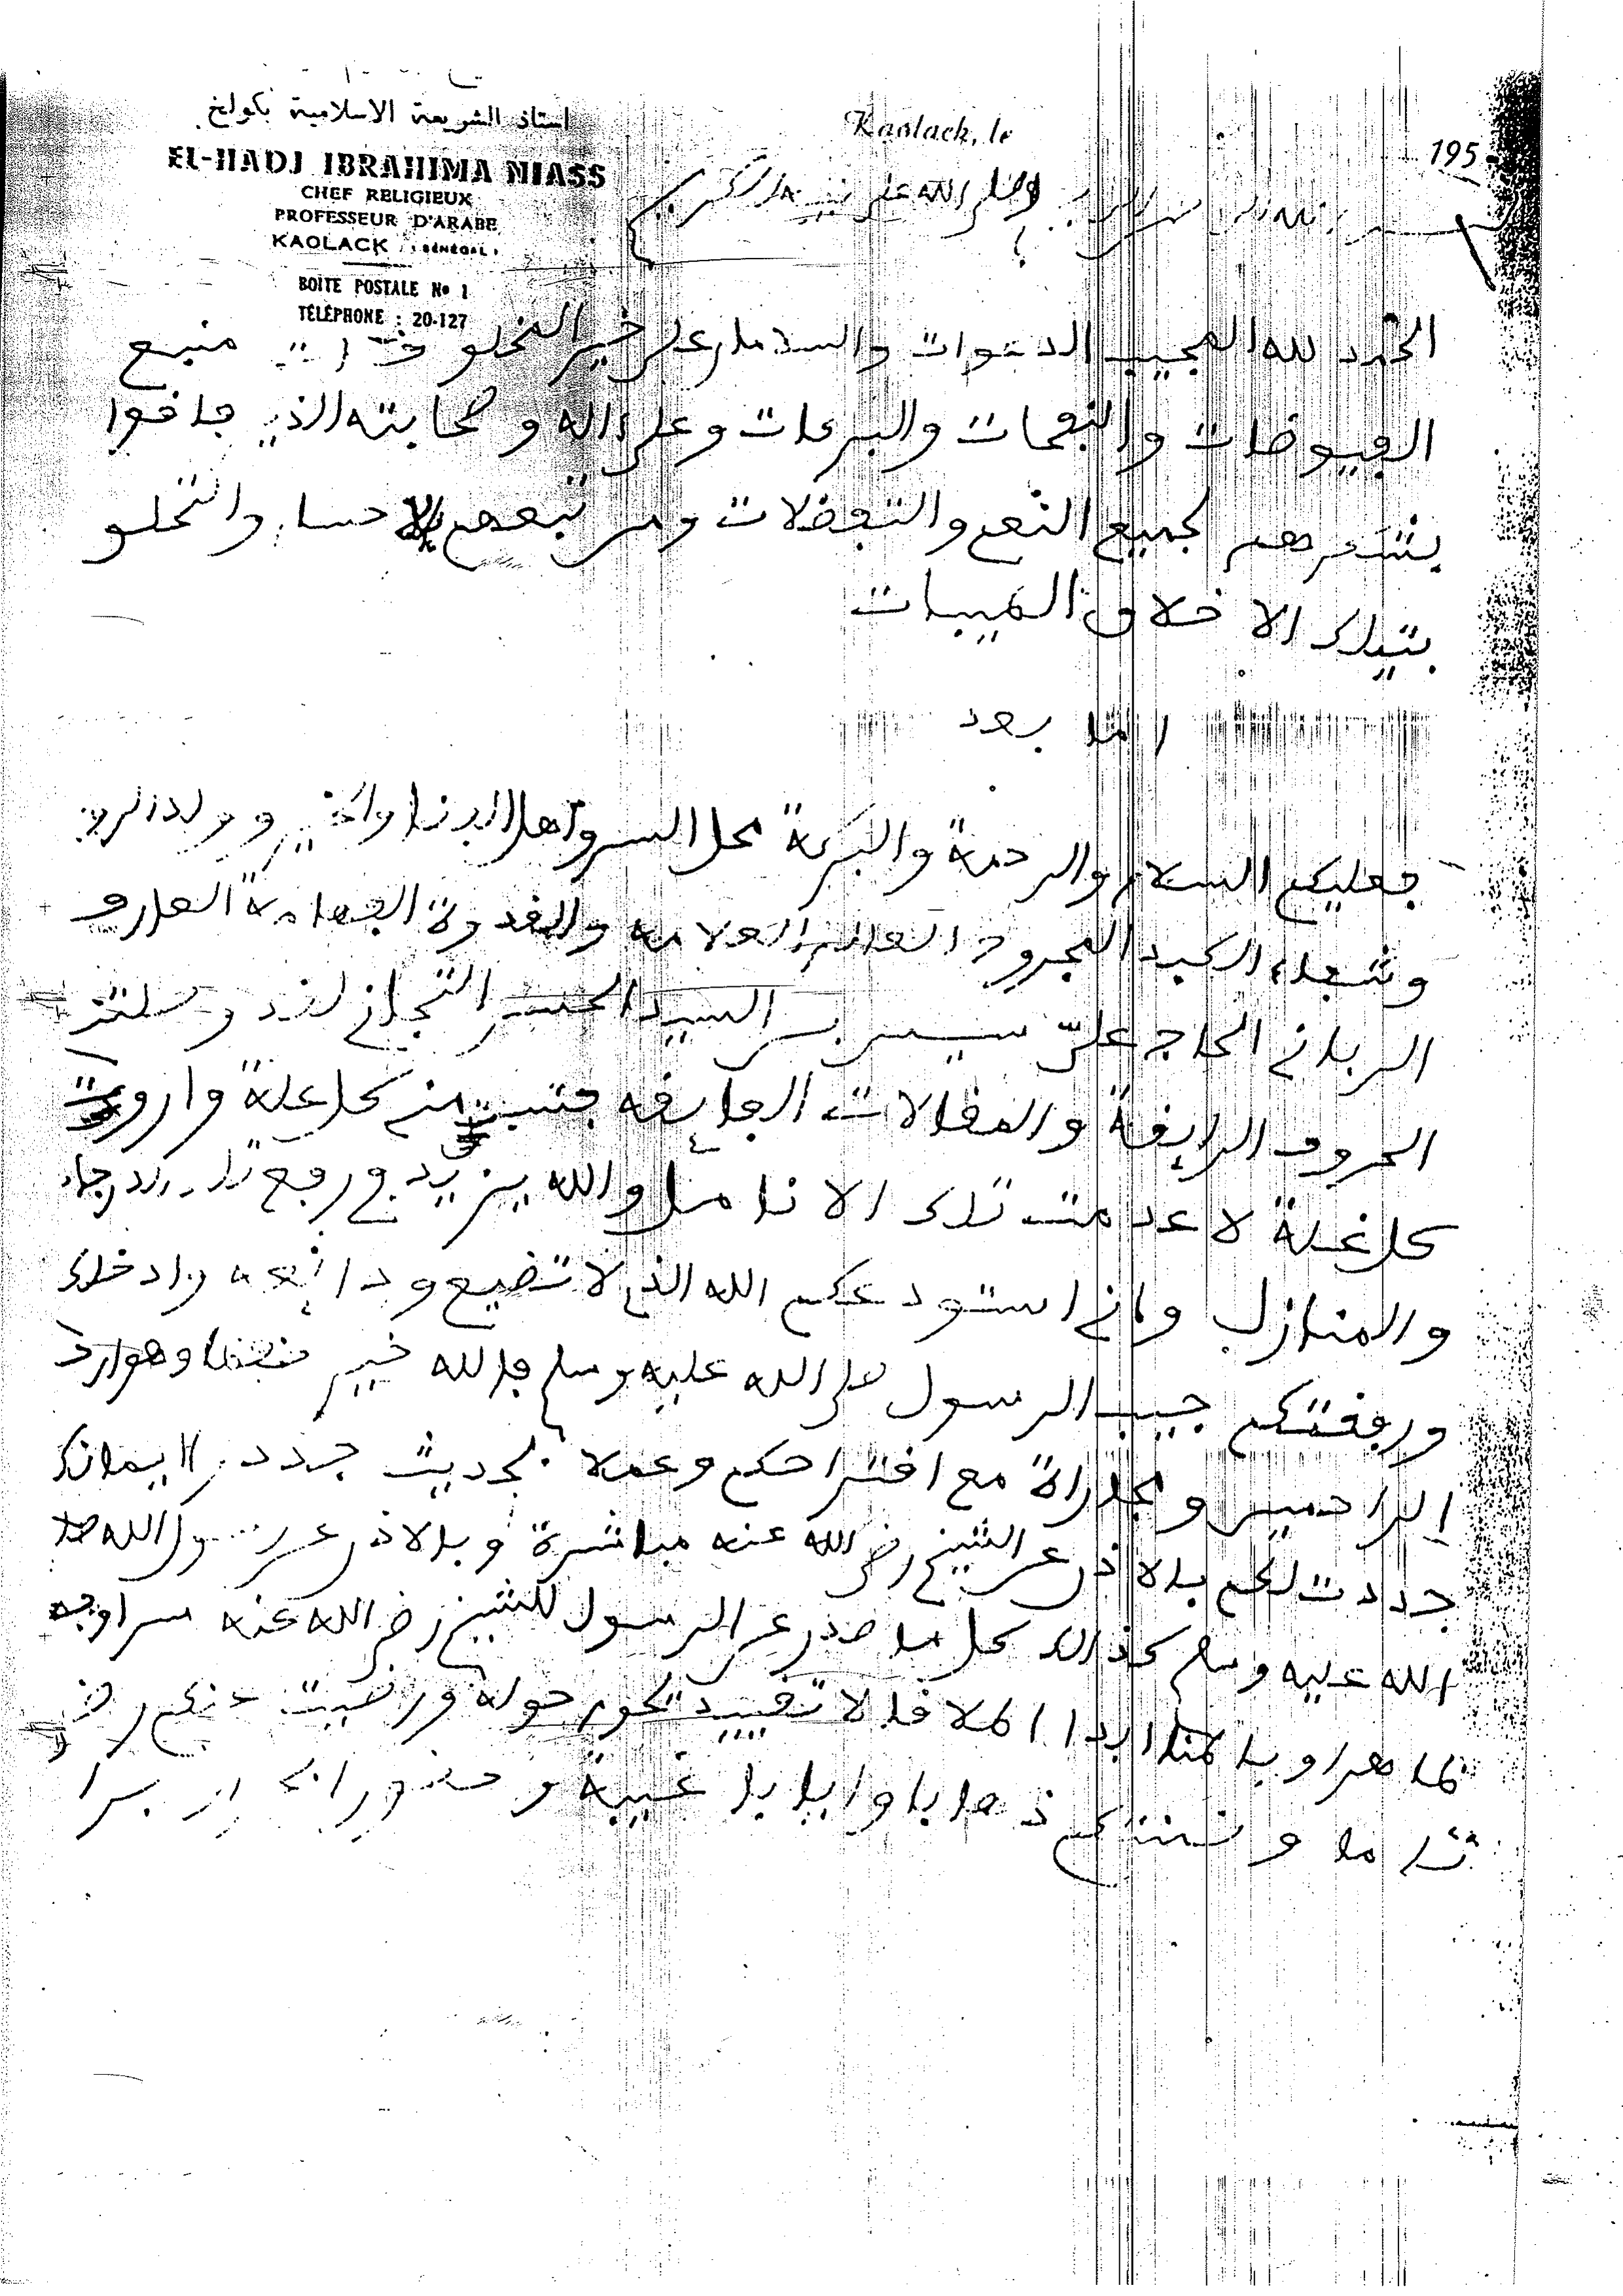 استاذ الشريعة الاسلامية بكولخ
EL-HADJ IBRAHIMA NIASS
CHEF RELIGIEUX
PROFESSEUR D'ARABE
KAOLACK (SÉNÉGAL)
BOITE POSTALE No 1
TÉLÉPHONE : 20-127
Kaolack, le 195
وصلى الله على نبيه الكريم
الحمد لله المجيب الدعوات والسلام على خير المخلوقات منبع
الفيوضات والنفحات والبركات وعلى ءاله وصحابته الذين فاقوا
بشكرهم لجميع النعم والتفضلات ومن تبعهم بالاحسان والتخلق
بتلك الاخلاق الطيبات
اما بعد
فعليكم السلام والرحمة والبركة محل السر واهله ابدنا
وشفاء الكبد المجروح العالم العلامة والقدوة الفهامة العارف
الرباني الحاج علي سيس بن السيد الحسن التجاني لقد وصلتني
الحروف الرايقة والمقالات الفايقه فشفت من كل علة واروت
كل غلة لا عدمت تلك الانامل والله يزيد في رفع تلك الدرجات
والمنازل واني استودعكم الله الذي لا تضيع ودائعه وادخلك
ورفقتكم جيب الرسول صلى الله عليه وسلم فالله خير حفظا وهو ارحم
الراحمين ومجاراة مع اقتراحكم وعملا بحديث جدد ايمانك
جددت لكم بالاذن عن الشيخ رضي الله عنه مباشرة وبالاذن عن رسول الله صلى
الله عليه وسلم كذالك كل ما صدر عن الرسول للشيخ رضي الله عنه سرا وجهرا
ظاهرا وباطنا ابدا اطلاقا لا تقييد يحوم حوله ورضيت عنكم رضى
تاما وضمنتكم ذهابا وايابا غيبة وحضورا بحرا وبرا